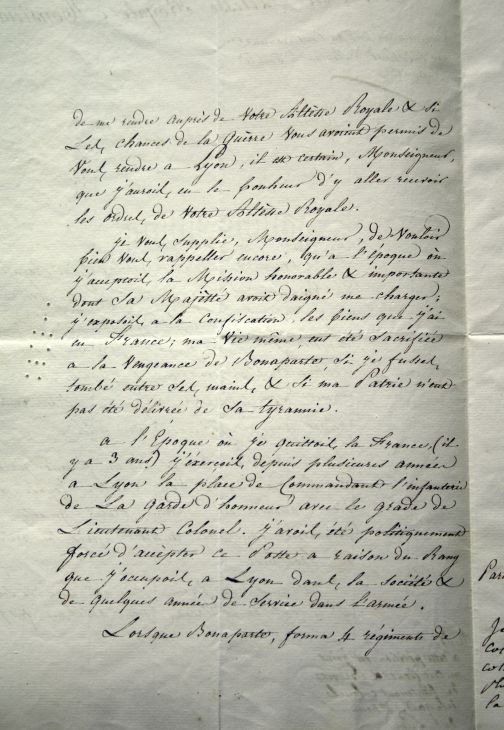 de me rendre auprès de Votre Altesse Royale & si
Les, chances de la Guerre Vous avoient permis de
Vous, rendre a Lyon, il est certain, Monseigneur,
que j'aurois, eu le bonheur d'y aller recevoir
les ordres, de Votre Altesse Royale.
je Vous, Supplie, Monseigneur, de Vouloir
bien Vous, rappeller encore, qu'a l'époque où
j'acceptois, la Mission honorable & importante
dont Sa Majesté avoit daigné me charger;
j'exposois, a la Confiscation, les biens que j'ai
en France; ma Vie même, eut été Sacrifiée
a la Vengeance de Bonaparte, Si je fusse,
tombé entre Ses, mains, & Si ma Patrie n'eut
pas été délivrée de Sa tyrannie.
a l'Époque où je quittois, la France, (il
y a 3 ans) j'éxerçois, depuis plusieures année
a Lyon la place de Commandant l'infanterie
de La Garde d'honneur avec le grade de
Lieutenant Colonel. j'avois, été politiquement
forcé d'accepter ce Poste a raison du Rang
que j'occupois, a Lyon dans, la société &
de quelques année de Service dans l'armée.
Lorsque Bonaparte, forma 4 régiments de
Par